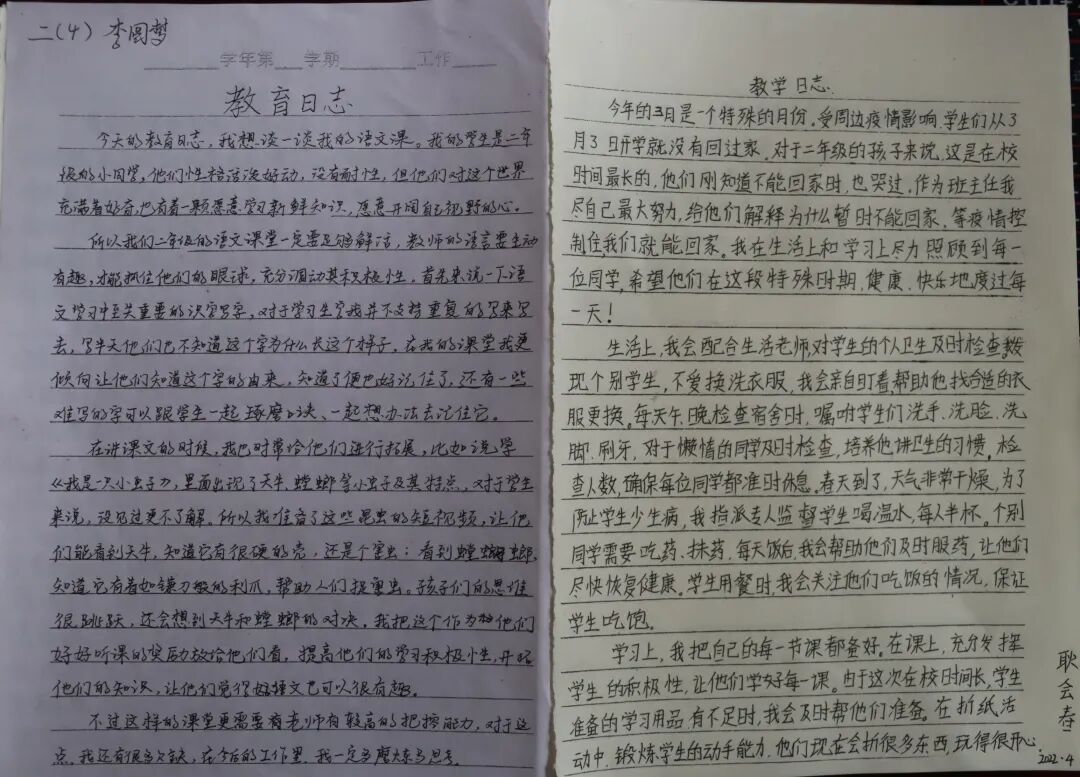 二（4）李圆梦
学年第 学期 工作
教育日志
今天的教育日志，我想谈一谈我的语文课。我的学生是二年
级的小同学，他们性格活泼好动，没有耐性，但他们对这个世界
充满着好奇，也有着一颗愿意学习新鲜知识，愿意开阔自己视野的心。
所以我们二年级的语文课堂一定要足够鲜活，教师的语言要生动
有趣，才能抓住他们的眼球，充分调动其积极性。首先来说一下语
文学习中至关重要的识字写字，对于学习生字我并不支持重复的写来写
去，写半天他们也不知道这个字为什么长这个样子。在我的课堂我更
倾向让他们知道这个字的由来，知道了便也好记住了，还有一些
难写的字可以跟学生一起琢磨口诀、一起想办法去记住它。
在讲课文的时候，我也时常给他们进行拓展，比如说学
《我是一只小虫子》，里面出现了天牛、螳螂等小虫子及其特点，对于学生
来说，没见过更不了解。所以我准备了这些昆虫的短视频，让他
们能看到天牛，知道它有很硬的壳，还是个害虫；看到螳螂，
知道它有着如镰刀般的利爪，帮助人们捉害虫。孩子们的思维
很跳跃，还会想到天牛和螳螂的对决。我把这个作为他们
好好听课的奖励放给他们看，提高他们的学习积极性，开阔
他们的知识，让他们觉得好语文也可以很有趣。
不过这样的课堂更需要有老师有较高的把控能力，对于这
点，我还有很多欠缺，在今后的工作里，我一定多磨炼多思考。
教学日志
今年的3月是一个特殊的月份。受周边疫情影响，学生们从3
月3日开学就没有回过家。对于二年级的孩子来说，这是在校
时间最长的，他们刚知道不能回家时，也哭过，作为班主任我
尽自己最大努力，给他们解释为什么暂时不能回家，等疫情控
制住，我们就能回家。我在生活上和学习上尽力照顾到每一
位同学，希望他们在这段特殊时期，健康、快乐地度过每
一天！
生活上，我会配合生活老师，对学生的个人卫生及时检查。发
现个别学生，不爱换洗衣服，我会亲自盯着帮助他找合适的衣
服更换。每天午、晚检查宿舍时，嘱咐学生们洗手、洗脸、洗
脚、刷牙，对于懒惰的同学及时检查，培养他讲卫生的习惯，检
查人数，确保每位同学都准时休息。春天到了，天气非常干燥，为了
防止学生少生病，我指派专人监督学生喝温水，每人半杯。个别
同学需要吃药、抹药，每天饭后，我会帮助他们及时服药，让他们
尽快恢复健康。学生用餐时，我会关注他们吃饭的情况，保证
学生吃饱。
学习上，我把自己的每一节课都备好。在课上，充分发挥
学生的积极性，让他们学好每一课。由于这次在校时间长，学生
准备的学习用品有不足时，我会及时帮他们准备。在折纸活
动中，锻炼学生的动手能力，他们现在会折很多东西，玩得很开心。
耿会春
2022.4